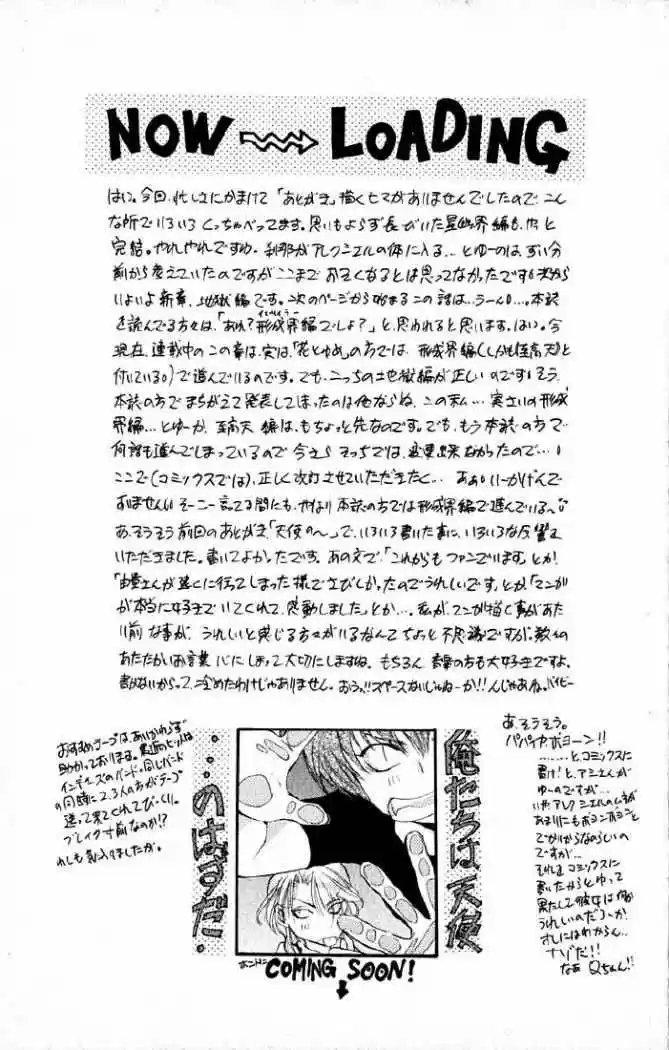 NOW → LOADING
はい。今回、忙しさにかまけて「あとがき」描くヒマがありませんでしたので、こん
な所でいろいろくっちゃべってます。思いもよらず長びいた星幽界編も、やっと
完結。やれやれですわ。刹那がアレクシエルの体に入る…とゆーのは、ずい分
前から考えていたのですがここまでおそくなるとは思ってなかったです。次から
いよいよ新章、地獄編です。次のページから始まるこの話は…うーん…。本誌
を読んでる方々は、「あれ?形成界編でしょ?」と、思われると思います。はい。今
現在、連載中のこの章は、実は、「花とゆめ」の方では、形成界編(しかも至高天と
付いている)で進んでいるのです。でも、こっちの地獄編が正しいのです!そう、
本誌の方でまちがえて発表してしまったのは他ならぬ、この私…実さいの形成
界編…とゆーか、至高天編は、もちょっと先なのです。でも、もう本誌の方で
何話も進んでしまっているので今さらそっちでは、変更出来なかったので…
ここで(コミックスでは)、正しく改訂させていただきたく…ああっいーかげんで
すいませんっそーこー言ってる間にも、やはり本誌の方では形成界編で進んでいる〜
あ、そうそう前回のあとがき、「天使の〜」で、いろいろ書いた事に、いろいろな反響を
いただきました。書いてよかったです。あの文で、「これからもファンでいます」とか
「由貴さんが遠くに行ってしまった様でさびしかったのでうれしいです」とか「マンガ
が本当に好きでいてくれて、感動しました」とか…。私が、マンガ描く事があた
り前な事が、うれしいと感じる方々がいるなんてちょっと不思議ですが、数々の
あたたかいお言葉 心にしまって大切にしますね。もちろん 音楽の方も大好きですよ。
書かないからって、冷めたわけじゃありません。おうっ!!スペースないじゃねーか!!んじゃあね。バイビー
おすすめテープは、あいかわらず
助かっております。最近のヒットは
インディーズのバンド。同じバンド
の同時に2、3人の方がテープ
送って来てくれてびっくり。
ブレイク寸前なのか!?
わしも気に入りましたが。
あ、そうそう。
パパイヤボヨーン!!
………とコミックスに
書け!と、アミさんが
ゆーのですが…
いやアレクシエルのムネが
あまりにもボヨンボヨンと
でかいからなのらしいの
ですが…
それをコミックスに
書いたからとゆって
果たして彼女は何が
うれしいのだろーか
オレにはわからん…
ナゾだ!!
なあ Qちゃん!!
俺たちは天使
…のはずだ。
ホントに
COMING SOON!